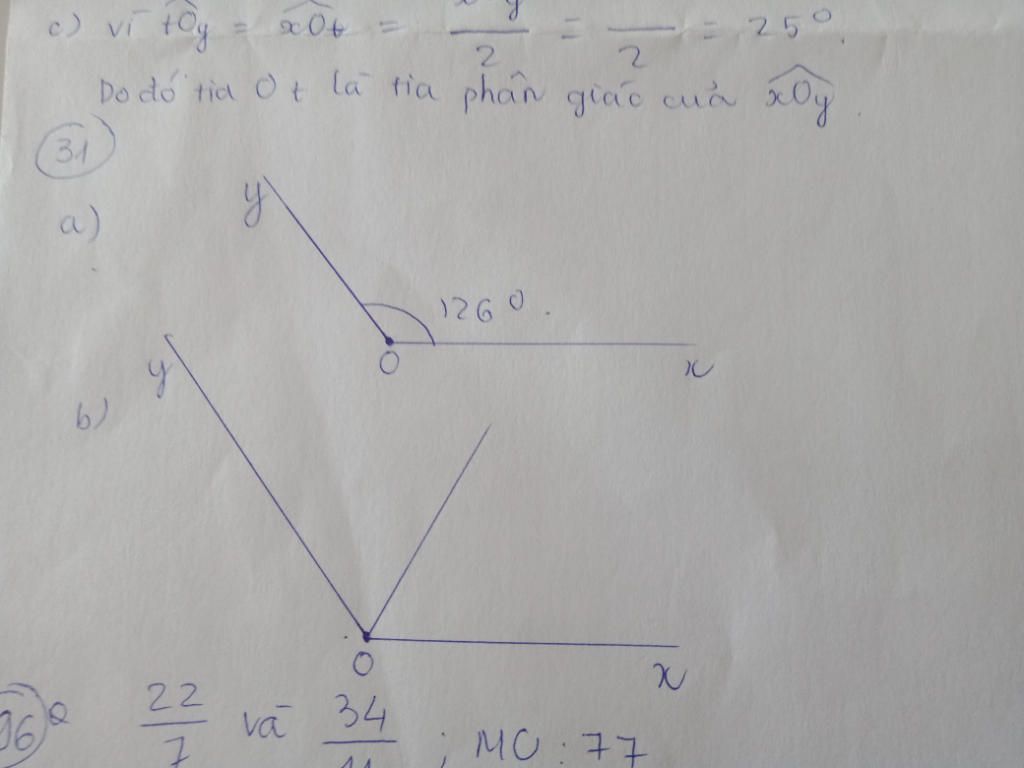 c) vì tOy = xOt = /2 = /2 = 25°.
Do đó tia Ot là tia phân giác của xOy.
31
a)
y
126°.
O
x
y
b)
O
x
22/7 và 34/ ; MC : 77